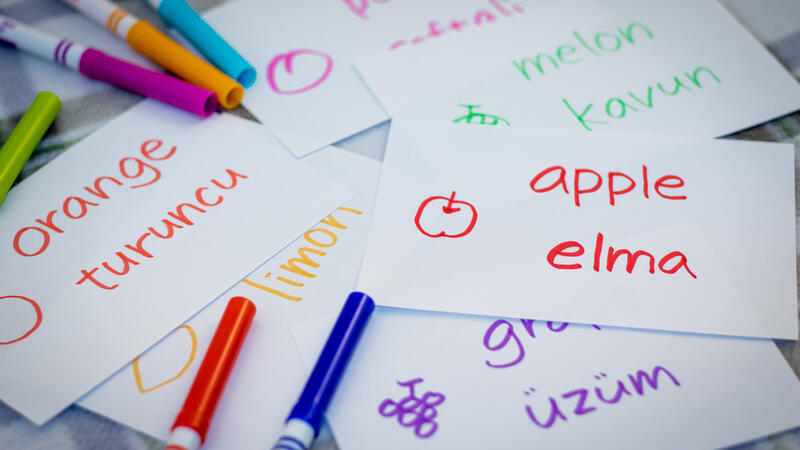 melon
kavun
orange
turuncu
apple
elma
limon
üzüm